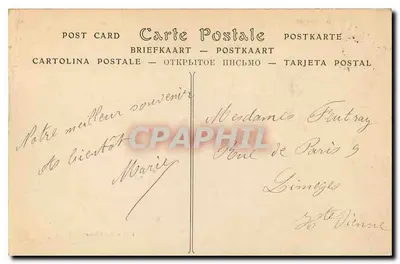 POST CARD Carte Postale POSTKARTE
BRIEFKAART — POSTKAART
CARTOLINA POSTALE — ОТКРЫТОЕ ПИСЬМО — TARJETA POSTAL
Notre meilleur souvenir
A bientôt
Marie
Mesdames Fentray
Rue de Paris 9
Limoges
Hte Vienne
CPAPHIL